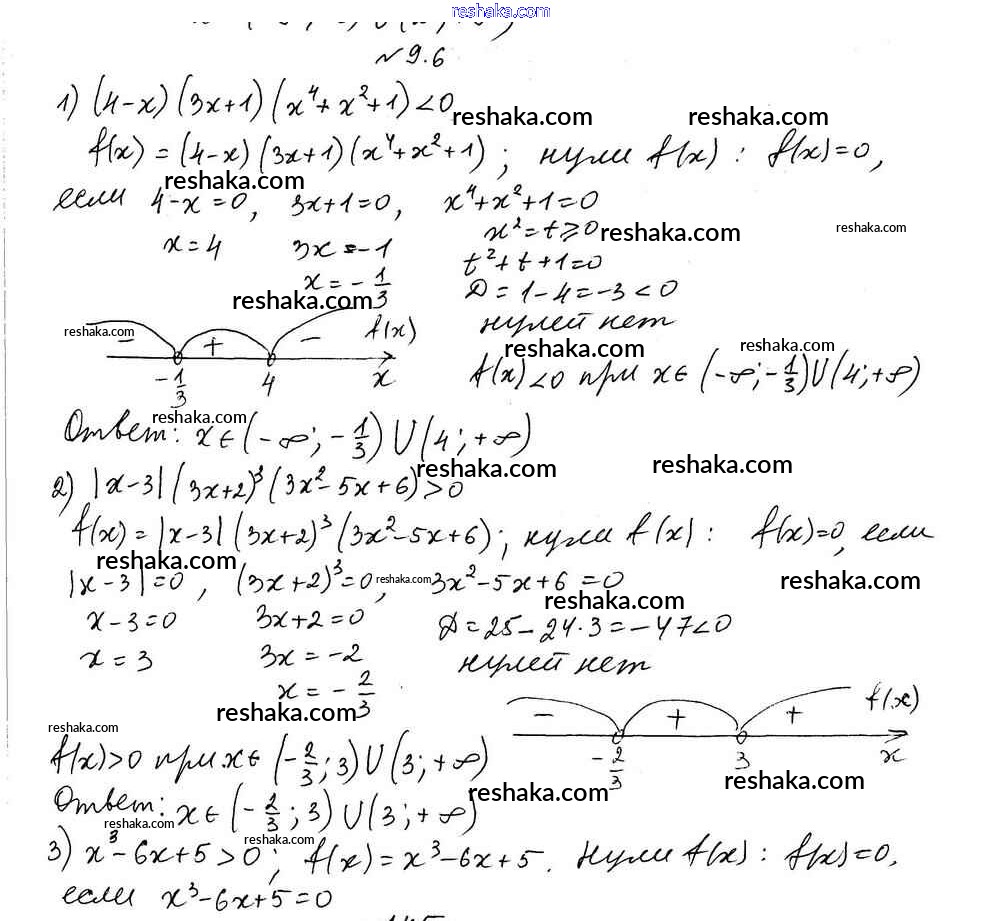 reshaka.com
№9.6
1) (4-x)(3x+1)(x⁴+x²+1)<0
reshaka.com reshaka.com
f(x) = (4-x)(3x+1)(x⁴+x²+1); нули f(x): f(x)=0,
reshaka.com
если 4-x=0, 3x+1=0, x⁴+x²+1=0
x=4 3x=-1 x²=t⩾0
reshaka.com reshaka.com
x=-1/3 t²+t+1=0
reshaka.com
D=1-4=-3<0
reshaka.com
- + - f(x) нулей нет
reshaka.com reshaka.com
-1/3 4 x f(x)<0 при x∈(-∞;-1/3)U(4;+∞)
reshaka.com
Ответ: x∈(-∞;-1/3)U(4;+∞)
reshaka.com reshaka.com
2) |x-3|(3x+2)³(3x²-5x+6)>0
f(x)=|x-3|(3x+2)³(3x²-5x+6); нули f(x): f(x)=0, если
reshaka.com
|x-3|=0, (3x+2)³=0, 3x²-5x+6=0
reshaka.com reshaka.com
reshaka.com
x-3=0 3x+2=0 D=25-24·3=-47<0
x=3 3x=-2 нулей нет
x=-2/3
reshaka.com
- + + f(x)
reshaka.com
-2/3 3 x
f(x)>0 при x∈(-2/3;3)U(3;+∞)
reshaka.com
reshaka.com
Ответ: x∈(-2/3;3)U(3;+∞)
reshaka.com
reshaka.com
3) x³-6x+5>0; f(x)=x³-6x+5. Нули f(x): f(x)=0,
если x³-6x+5=0